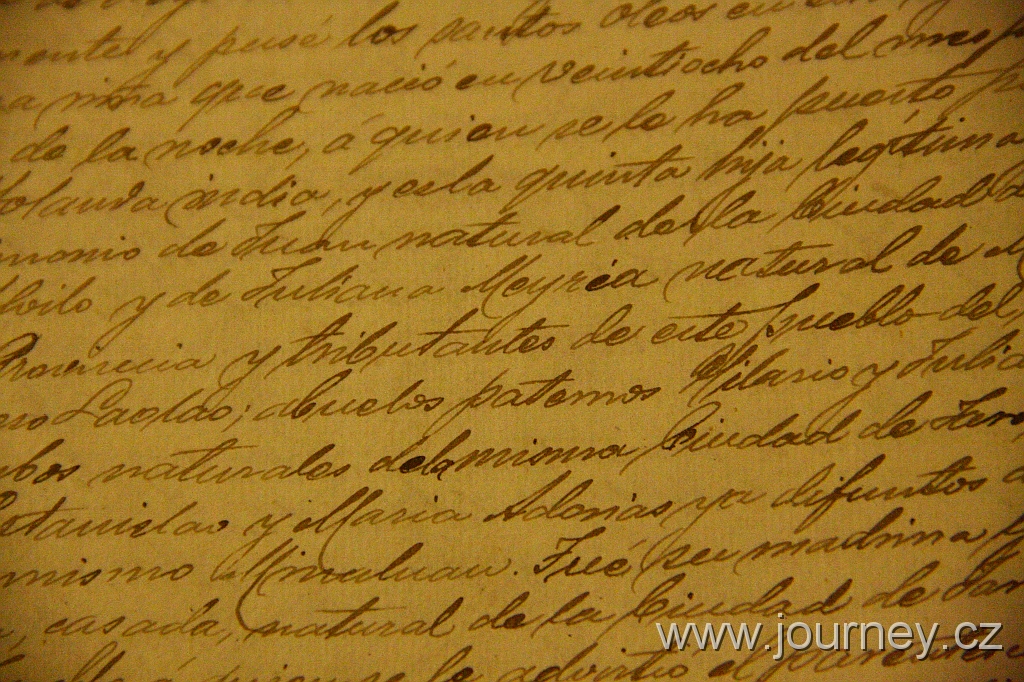 mente y puse los santos oleos en
niña que nació en veintiocho del mes p
de la noche, á quien se le ha puesto p
Yolanda india, y es la quinta hija legitima
monio de Juan natural de la Ciudad d
y de Juliana natural de M
Provincia y tributantes de este pueblo del
Laolao; abuelos paternos Hilario y Julia
bos naturales de la misma Ciudad de
Estanislao y Maria Adonás ya difuntos
mismo Minaluan. Fué su madrina
casada, natural de la Ciudad de San
á quien se le advirtió el parentesco
www.journey.cz